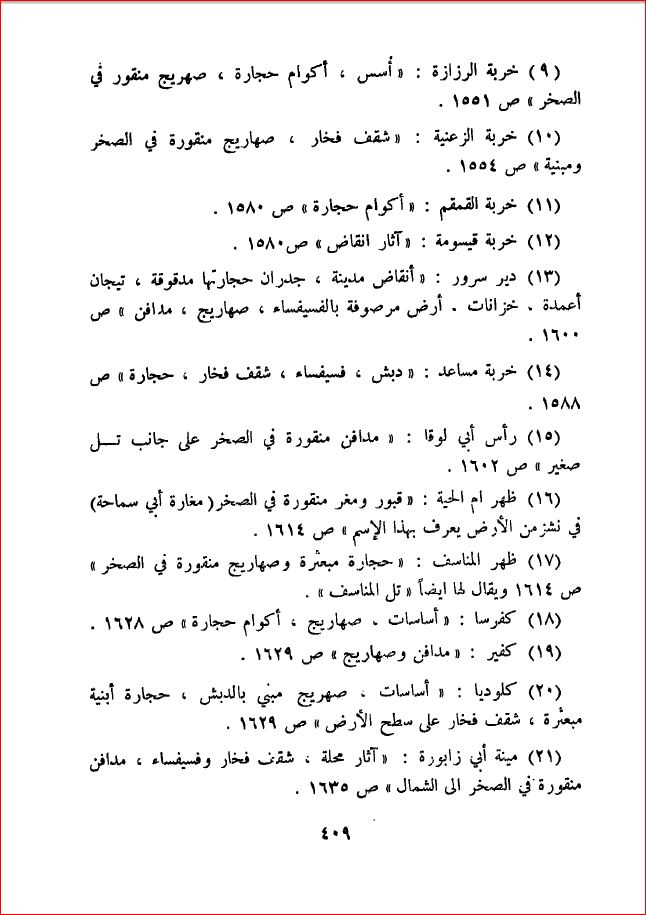 (٩) خربة الرزازة : « أُسس ، أكوام حجارة ، صهريج منقور في
الصخر » ص ١٥٥١ .
(١٠) خربة الزعنية : « شقف فخار ، صهاريج منقورة في الصخر
ومبنية » ص ١٥٥٤ .
(١١) خربة القمقم : « أكوام حجارة » ص ١٥٨٠ .
(١٢) خربة قيسومة : « آثار انقاض » ص١٥٨٠ .
(١٣) دير سرور : « أنقاض مدينة ، جدران حجارتها مدقوقة ، تيجان
أعمدة . خزانات . أرض مرصوفة بالفسيفساء ، صهاريج ، مدافن » ص
١٦٠٠ .
(١٤) خربة مساعد : « دبش ، فسيفساء ، شقف فخار ، حجارة » ص
١٥٨٨ .
(١٥) رأس أبي لوقا : « مدافن منقورة في الصخر على جانب تـــل
صغير » ص ١٦٠٢ .
(١٦) ظهر ام الحية : « قبور ومغر منقورة في الصخر ( مغارة أبي سماحة)
في نشز من الأرض يعرف بهذا الإسم » ص ١٦١٤ .
(١٧) ظهر المناسف : « حجارة مبعثرة وصهاريج منقورة في الصخر »
ص ١٦١٤ ويقال لها ايضاً « تل المناسف » .
(١٨) كفرسا : « أساسات . صهاريج ، أكوام حجارة » ص ١٦٢٨ .
(١٩) كفير : « مدافن وصهاريج » ص ١٦٢٩ .
(٢٠) كلوديا : « أساسات . صهريج مبني بالدبش ، حجارة أبنية
مبعثرة ، شقف فخار على سطح الأرض » ص ١٦٢٩ .
(٢١) مينة أبي زابورة : « آثار محلة ، شقف فخار وفسيفساء ، مدافن
منقورة في الصخر الى الشمال » ص ١٦٣٥ .
٤٠٩